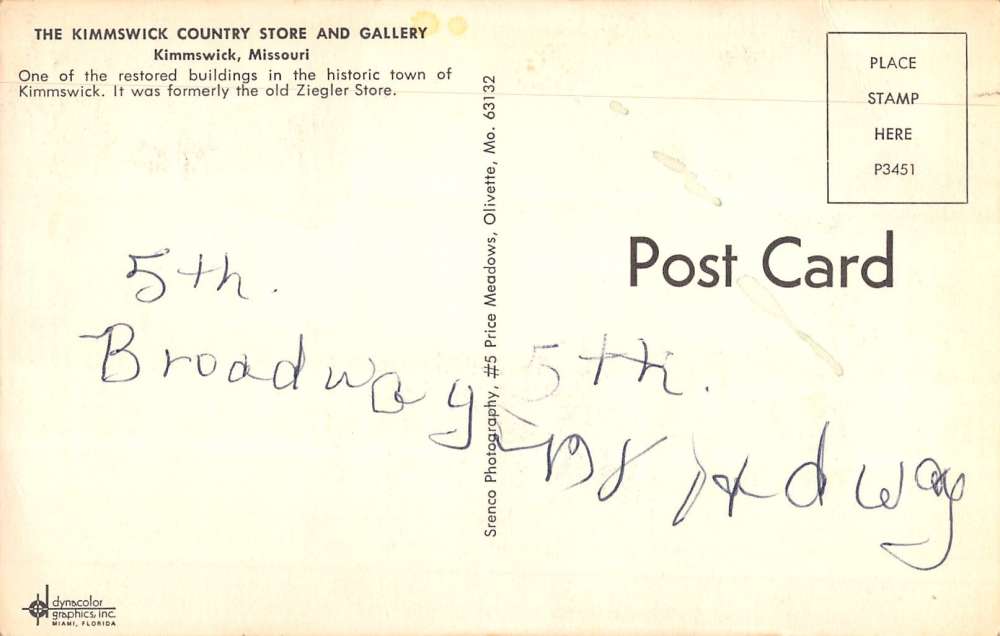 THE KIMMSWICK COUNTRY STORE AND GALLERY
Kimmswick, Missouri
One of the restored buildings in the historic town of
Kimmswick. It was formerly the old Ziegler Store.
5th.
Broadway
Srenco Photography, #5 Price Meadows, Olivette, Mo. 63132
PLACE
STAMP
HERE
P3451
Post Card
5th.
dynacolor
graphics, inc.
MIAMI, FLORIDA